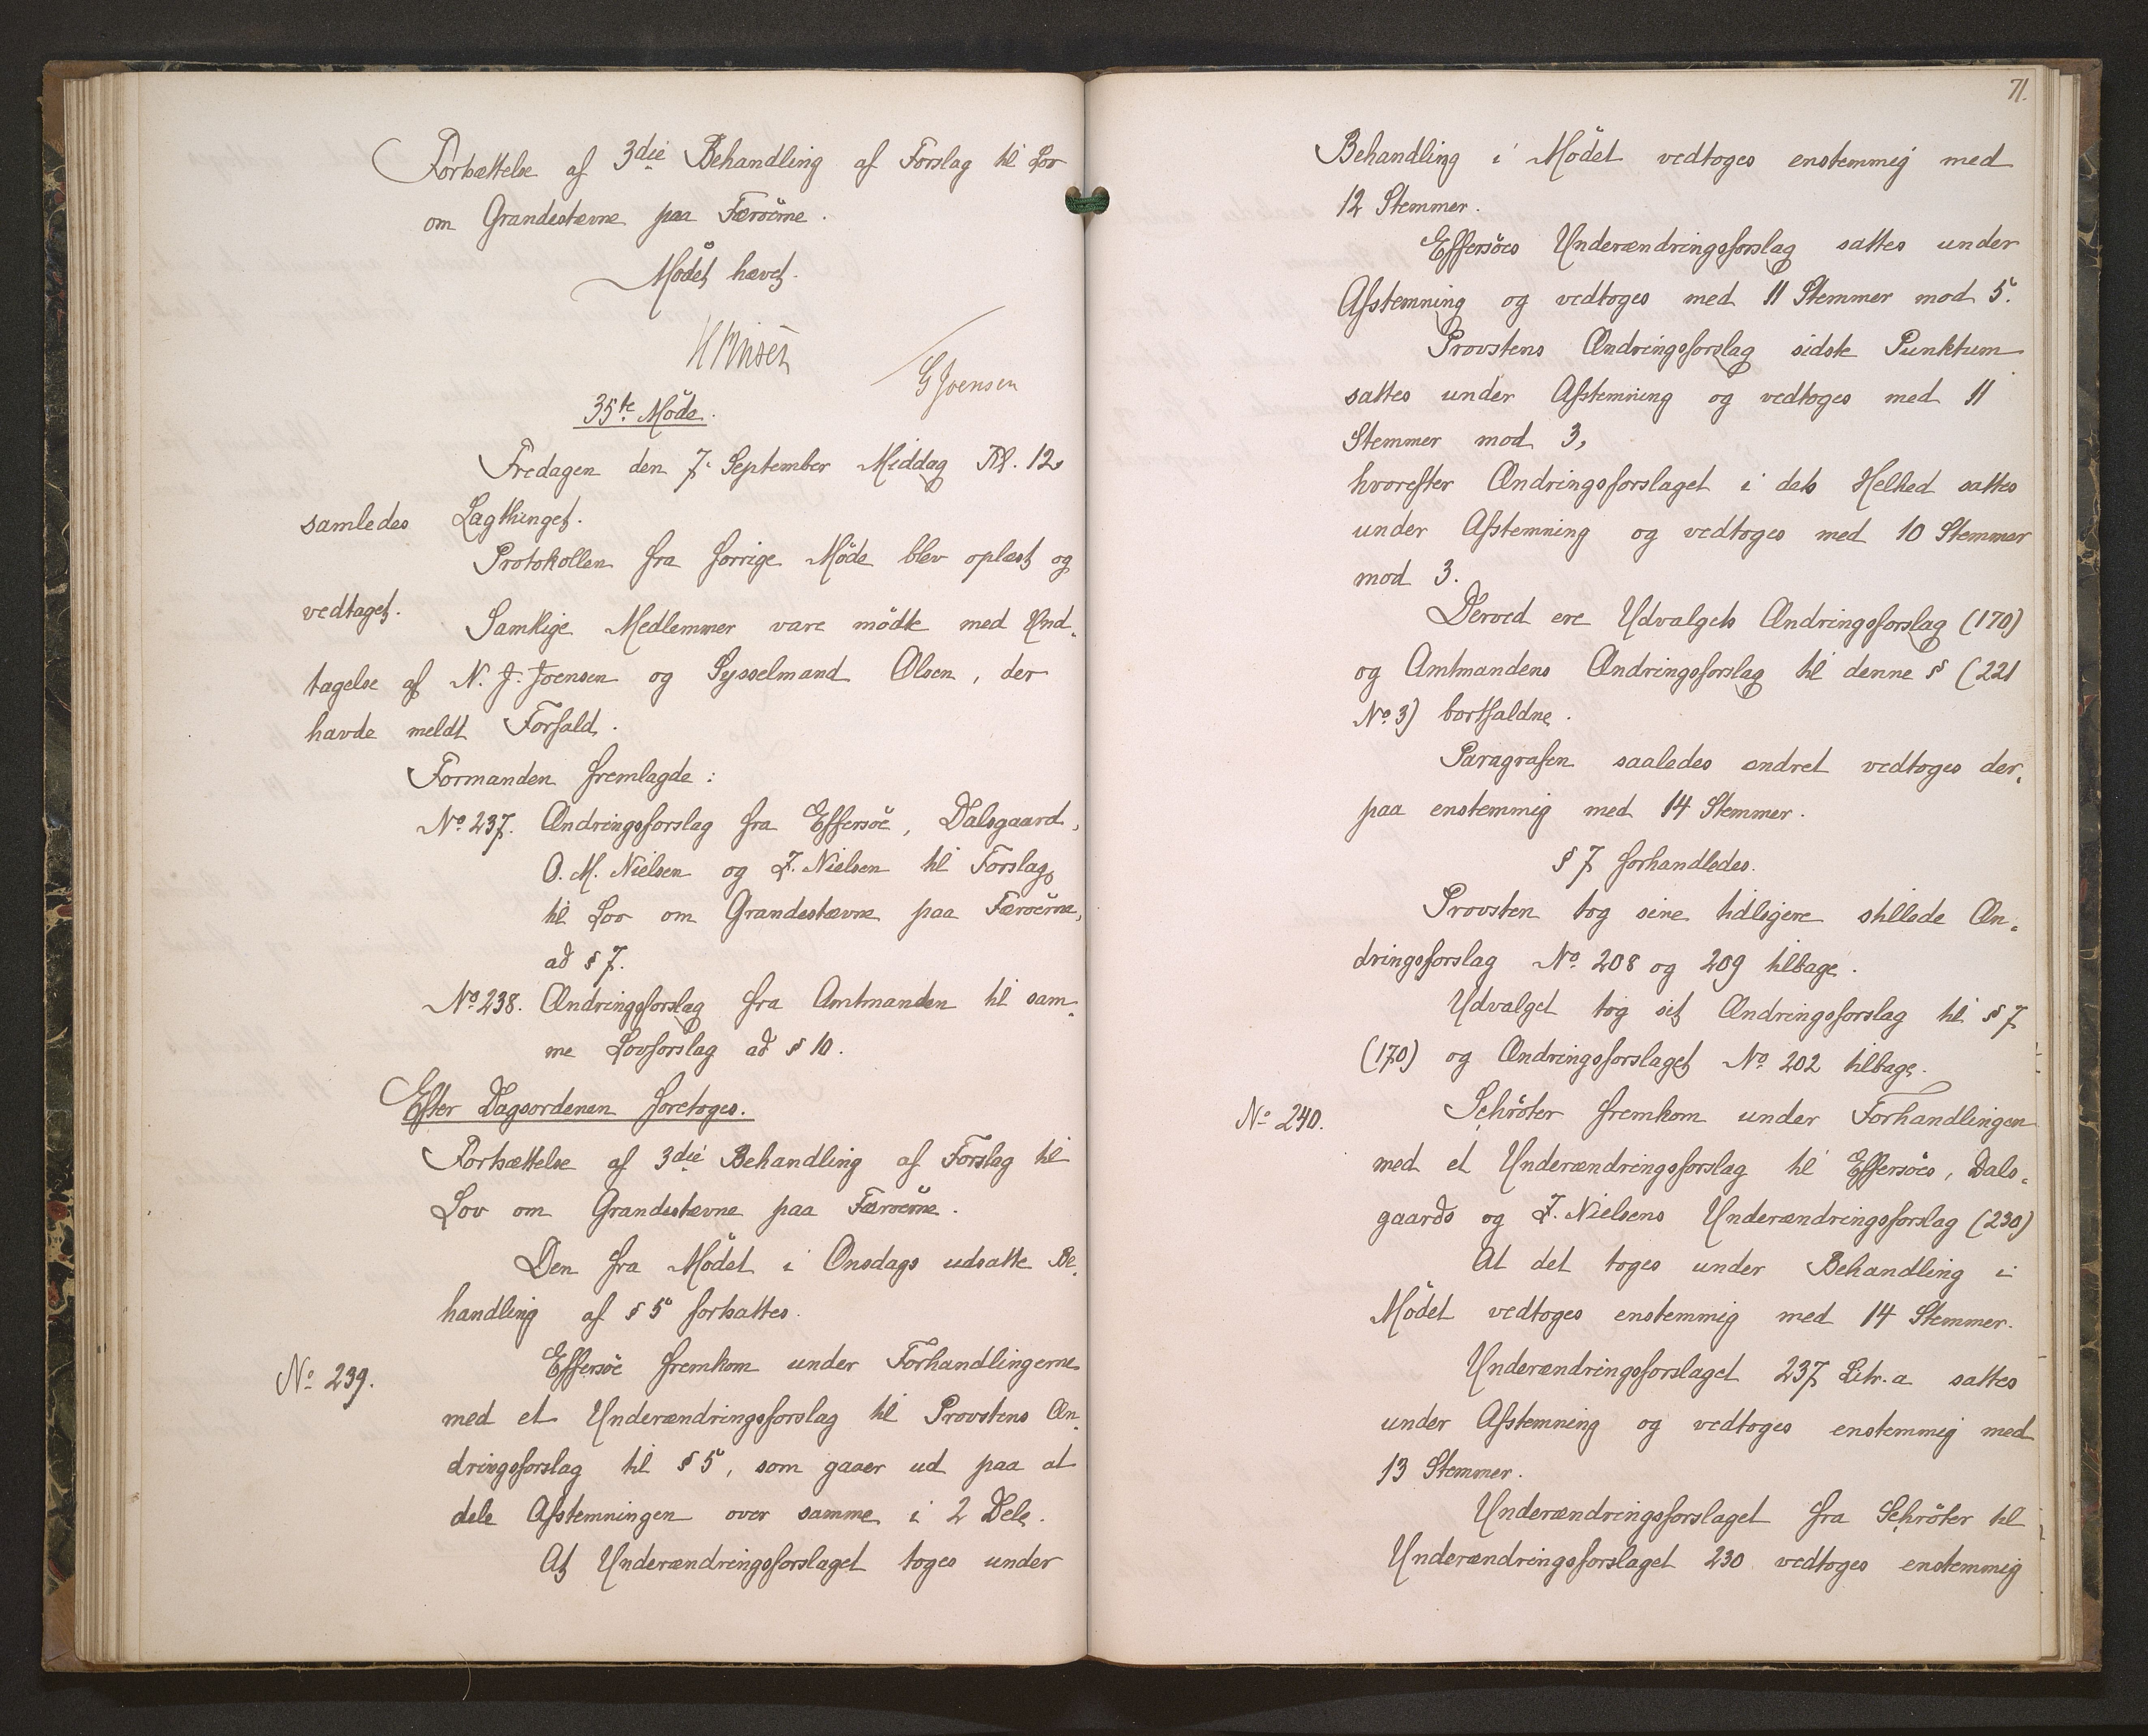 Fortsættelse af 3die Behandling af Forslag til Lov
om Grandestævne paa Færøerne.
Mødet hævet.
HFinsen
GJoensen
35te Møde.
Fredagen den 7. September Middag Kl. 12
samledes Lagthinget.
Protokollen fra forrige Møde blev oplæst og
vedtaget.
Samtlige Medlemmer vare mødte med Und-
tagelse af N. J. Joensen og Sysselmand Olsen, der
havde meldt Forfald.
Formanden fremlagde:
No. 237. Ændringsforslag fra Effersöe, Dalsgaard,
O. M. Nielsen og Z. Nielsen til Forslag
til Lov om Grandestævne paa Færøerne,
ad § 7.
No. 238. Ændringsforslag fra Amtmanden til sam-
me Lovforslag ad § 10.
Efter Dagsordenen foretoges.
Fortsættelse af 3die Behandling af Forslag til
Lov om Grandestævne paa Færøerne.
Den fra Mødet i Onsdags udsatte Be-
handling af § 5 fortsattes.
No. 239.
Effersöe fremkom under Forhandlingerne
med et Underændringsforslag til Provstens Æn-
dringsforslag til § 5, som gaaer ud paa at
dele Afstemningen over samme i 2 Dele.
At Underændringsforslaget toges under
71.
Behandling i Mødet vedtoges enstemmig med
12 Stemmer.
Effersöes Underændringsforslag sattes under
Afstemning og vedtoges med 11 Stemmer mod 5.
Provstens Ændringsforslag sidste Punktum
sattes under Afstemning og vedtoges med 11
Stemmer mod 3,
hvorefter Ændringsforslaget i dets Helhed sattes
under Afstemning og vedtoges med 10 Stemmer
mod 3.
Derved ere Udvalgets Ændringsforslag (170)
og Amtmandens Ændringsforslag til denne § (221
No. 3) bortfaldne.
Paragrafen saaledes ændret vedtoges der-
paa enstemmig med 14 Stemmer.
§ 7 forhandledes.
Provsten tog sine tidligere stillede Æn-
dringsforslag No. 208 og 209 tilbage.
Udvalget tog sit Ændringsforslag til § 7
(170) og Ændringsforslaget No. 202 tilbage.
No. 240.
Schröter fremkom under Forhandlingen
med et Underændringsforslag til Effersöes, Dals-
gaards og Z. Nielsens Underændringsforslag (230)
At det toges under Behandling i
Mødet vedtoges enstemmig med 14 Stemmer.
Underændringsforslaget 237 Litr. a sattes
under Afstemning og vedtoges enstemmig med
13 Stemmer.
Underændringsforslaget fra Schröter til
Underændringsforslaget 230 vedtoges enstemmig